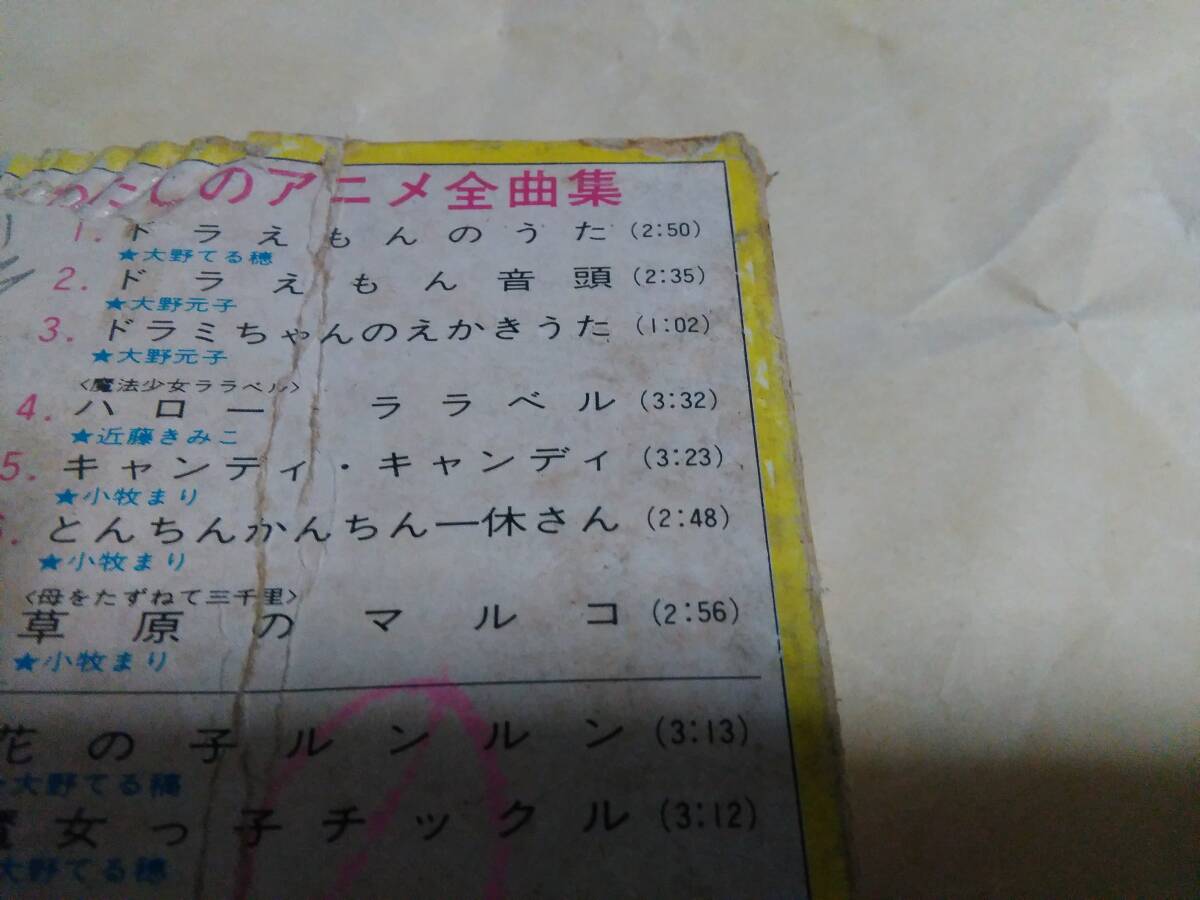 わたしのアニメ全曲集
1. ドラえもんのうた (2:50)
★大野てる穂
2. ドラえもん音頭 (2:35)
★大野元子
3. ドラミちゃんのえかきうた (1:02)
★大野元子
〈魔法少女ララベル〉
4. ハロー ララベル (3:32)
★近藤きみこ
5. キャンティ・キャンディ (3:23)
★小牧まり
6. とんちんかんちん一休さん (2:48)
★小牧まり
〈母をたずねて三千里〉
草原のマルコ (2:56)
★小牧まり
花の子ルンルン (3:13)
★大野てる穂
魔女っ子チックル (3:12)
大野てる穂